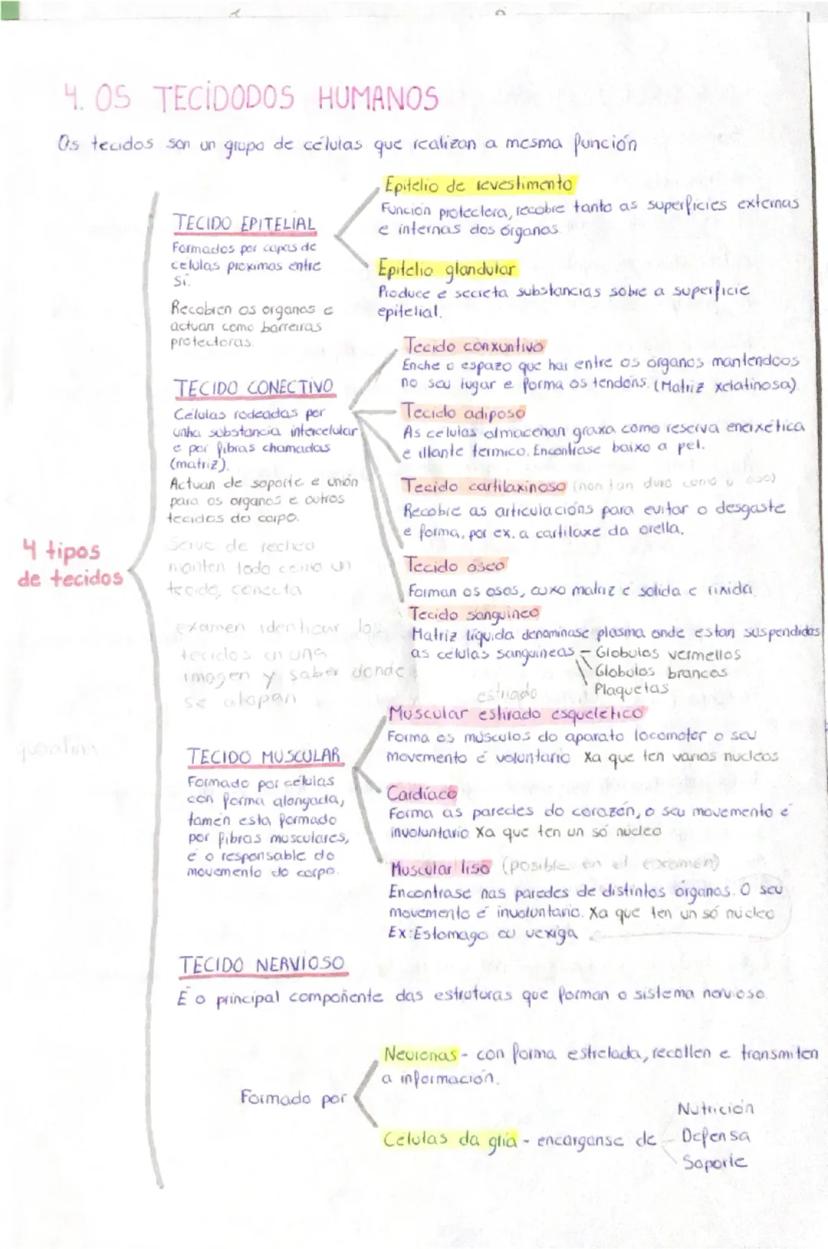 4. OS TECIDODOS HUMANOS
Os tecidos son un grupo de células que realizan a mesma función
4 tipos
de tecidos
TECIDO EPITELIAL
Formados por capas de
celulas proximas entre
si.
Recobren os organos e
actuan como barreiras
protectoras.
Epitelio de revestimento
Función protectora, recobre tanto as superficies externas
e internas dos órganos.
Epitelio glandular
Produce e secreta substancias sobre a superficie
epitelial.
TECIDO CONECTIVO
Células rodeadas por
unha substancia intercelular
e por fibras chamadas
(matriz).
Actuan de soporte e unión
para os organos e outros
tecidos do corpo.
Serve de recheo
manten todo como un
tecido, conecta
examen identicar los
tecidos en una
imagen y saber donde
se atopan
Tecido conxuntivo
Enche o espazo que hai entre os órganos mantendoos
no seu lugar e forma os tendóns. (Matriz xelatinosa)
Tecido adiposo
As celulas almacenan graxa como reserva enerxética
e illante termico. Encontrase baixo a pel.
Tecido cartilaxinoso (non tan duro como o oso)
Recobre as articulacións para evitar o desgaste
e forma, por ex. a cartilaxe da orella.
Tecido óseo
Forman os osos, cuxo matriz é solida e rixida
Tecido sanguineo
Matriz líquida denominase plasma onde estan suspendidas
as celulas sanguineas - Globulos vermellos
Globulos brancos
Plaquetas
TECIDO MUSCULAR
Formado por células
con forma alongada,
tamén esta formado
por fibras musculares,
é o responsable do
movemento do corpo.
estriado
Muscular estirado esqueletico
Forma os músculos do aparato locomotor o seu
movemento é voluntario Xa que ten varios nucleos
Cardíaco
Forma as paredes do corazón, o seu movemento é
involuntario Xa que ten un só núcleo
Muscular liso (posible en el examen)
Encontrase nas paredes de distintos órganos. O seu
movemento é involuntario. Xa que ten un só nucleo
Ex: Estomago ou vexiga
TECIDO NERVIOSO
É o principal compoñente das estruturas que forman o sistema nervioso
Formado por
Neuronas - con forma estrelada, recollen e transmiten
a información.
Celulas da glia - encarganse de
Nutrición
Defensa
Soporte